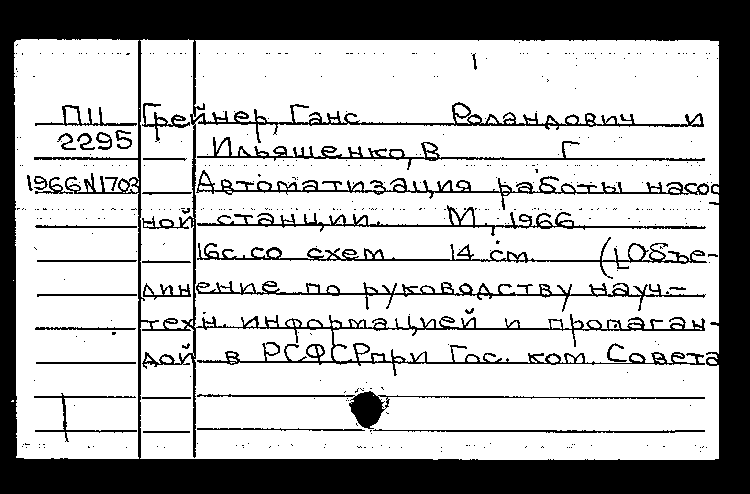 1
ПII Грейнер, Ганс Роландович и
2295 Ильяшенко, В Г
1966N1703 Автоматизация работы насос
ной станции. М., 1966.
16с. со схем. 14 см. ([Объе-
динение по руководству науч.-
техн. информацией и пропаган-
дой в РСФСР при Гос. ком. Совета